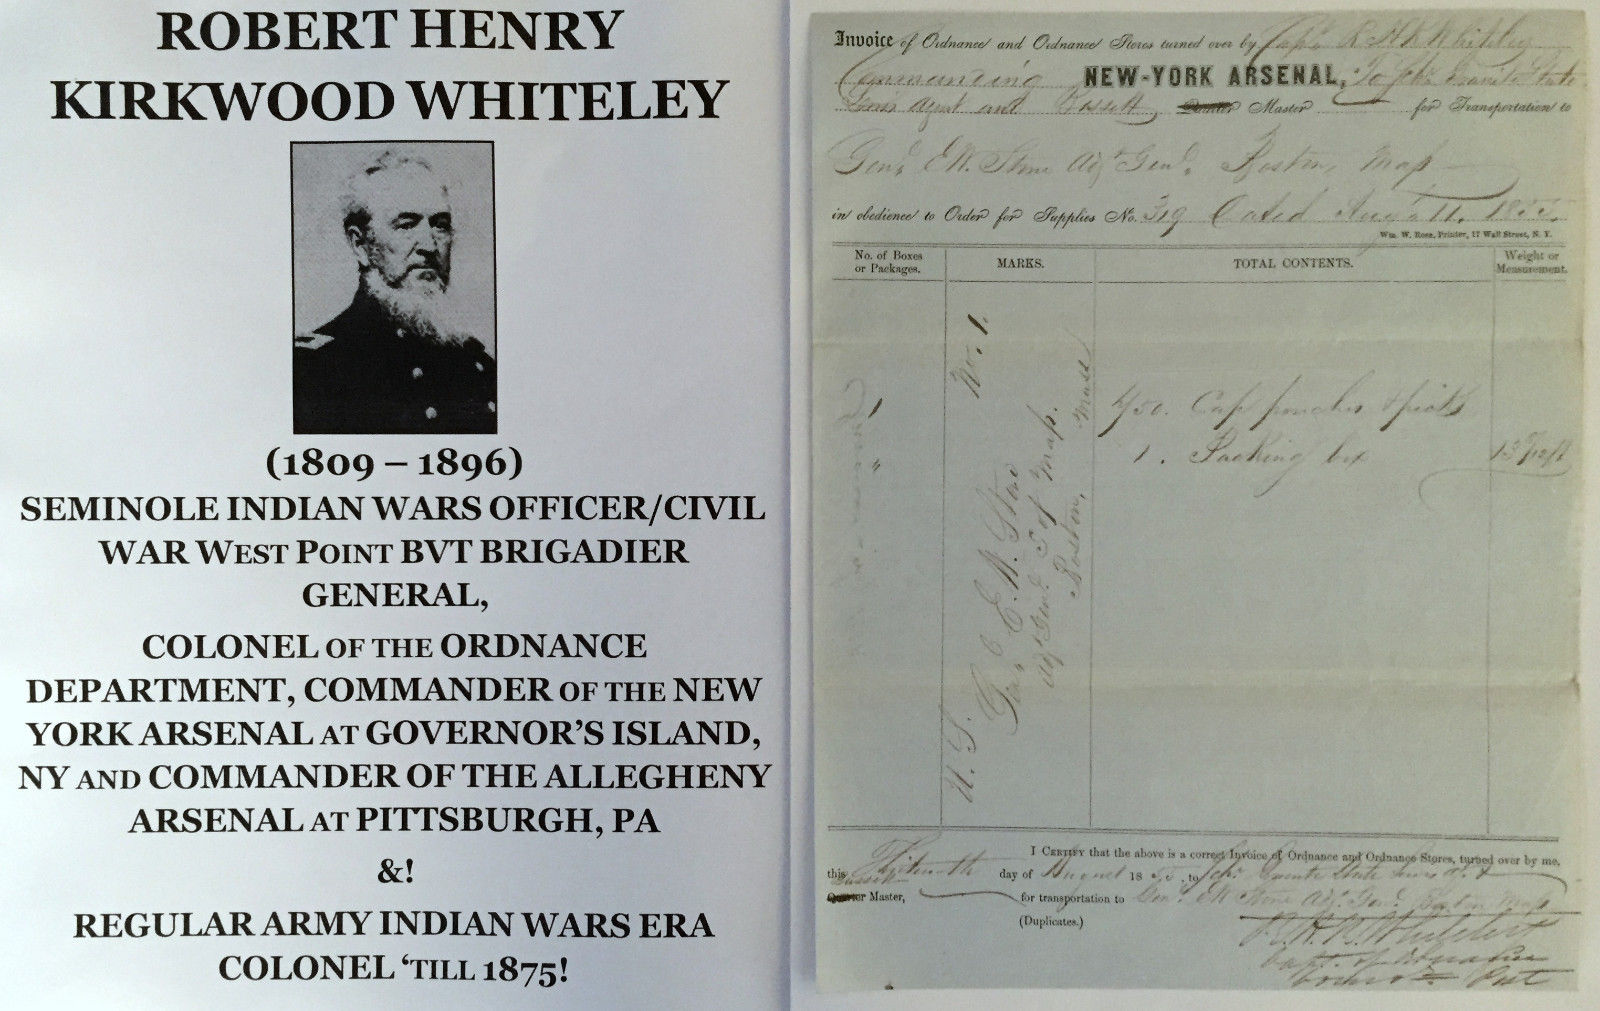 ROBERT HENRY
KIRKWOOD WHITELEY
(1809 – 1896)
SEMINOLE INDIAN WARS OFFICER/CIVIL
WAR WEST POINT BVT BRIGADIER
GENERAL,
COLONEL OF THE ORDNANCE
DEPARTMENT, COMMANDER OF THE NEW
YORK ARSENAL AT GOVERNOR'S ISLAND,
NY AND COMMANDER OF THE ALLEGHENY
ARSENAL AT PITTSBURGH, PA
&!
REGULAR ARMY INDIAN WARS ERA
COLONEL 'TILL 1875!
Invoice of Ordnance and Ordnance Stores turned over by Capt. R H K Whiteley
Commanding NEW-YORK ARSENAL, To Schr. Granite State
Agent and Master for Transportation to
Genl. E W. Stone Adjt Genl. Boston, Mass
in obedience to Order for Supplies No. 319 Dated Augt 11. 1855.
Wm. W. Rose, Printer, 17 Wall Street, N. Y.
No. of Boxes or Packages.
MARKS.
TOTAL CONTENTS.
Weight or Measurement.
No. 1.
U. S.
Genl E. W. Stone
Adjt Genl. S of Mass.
Boston, Mass
1 450. Cap pouches & picks
" 1. Packing box
I CERTIFY that the above is a correct Invoice of Ordnance and Ordnance Stores, turned over by me,
this day of August 1855, to Schr. Granite State
Master, for transportation to Genl. E W Stone Adjt. Genl. Boston Mass
(Duplicates.)
R. H. K. Whiteley
Capt. of Ordnance
Post